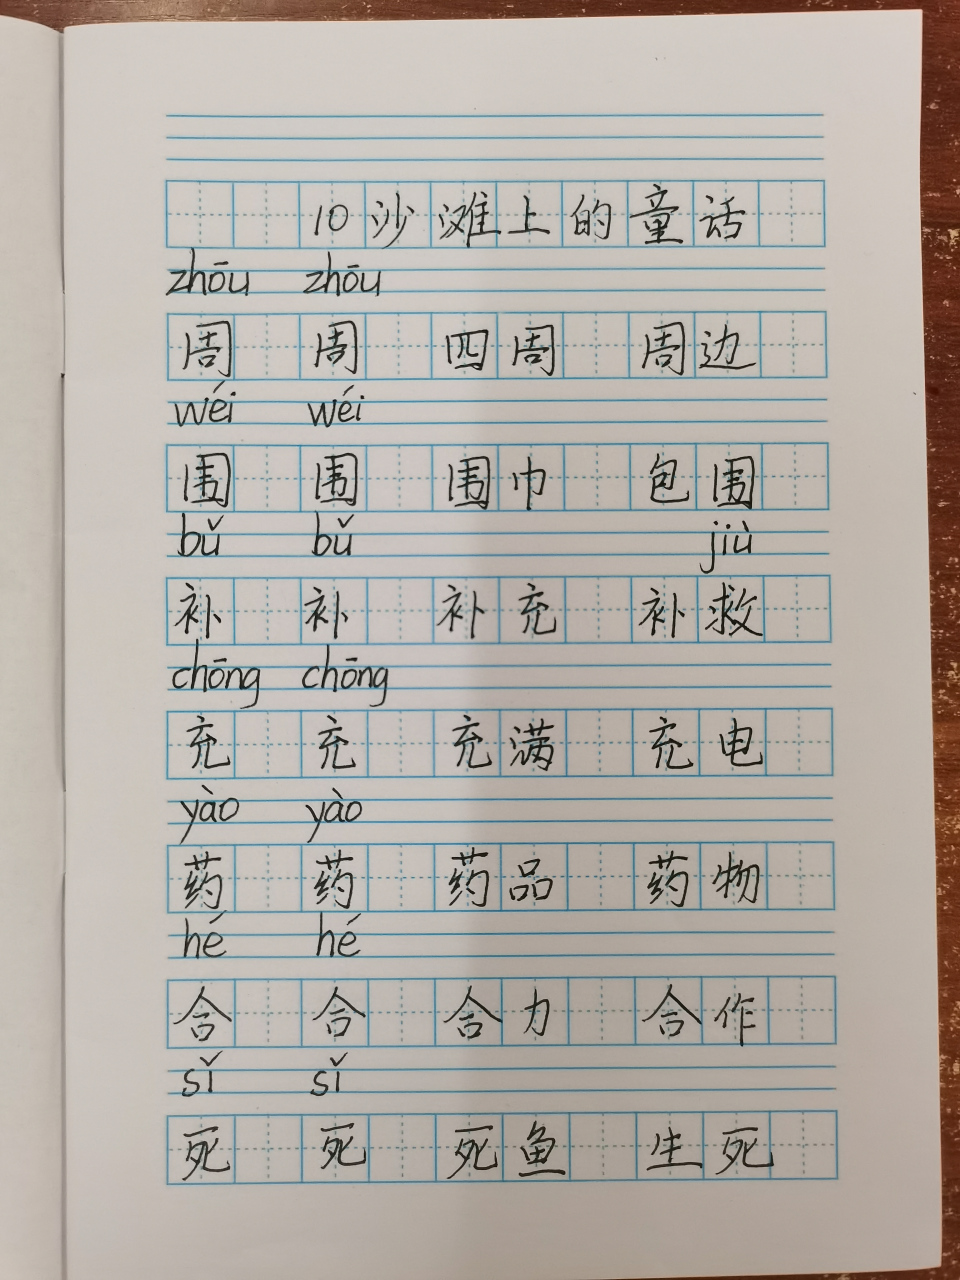 10 沙滩上的童话
zhōu zhōu
周 周 四周 周边
wéi wéi
围 围 围巾 包围
bǔ bǔ jiù
补 补 补充 补救
chōng chōng
充 充 充满 充电
yào yào
药 药 药品 药物
hé hé
合 合 合力 合作
sǐ sǐ
死 死 死鱼 生死